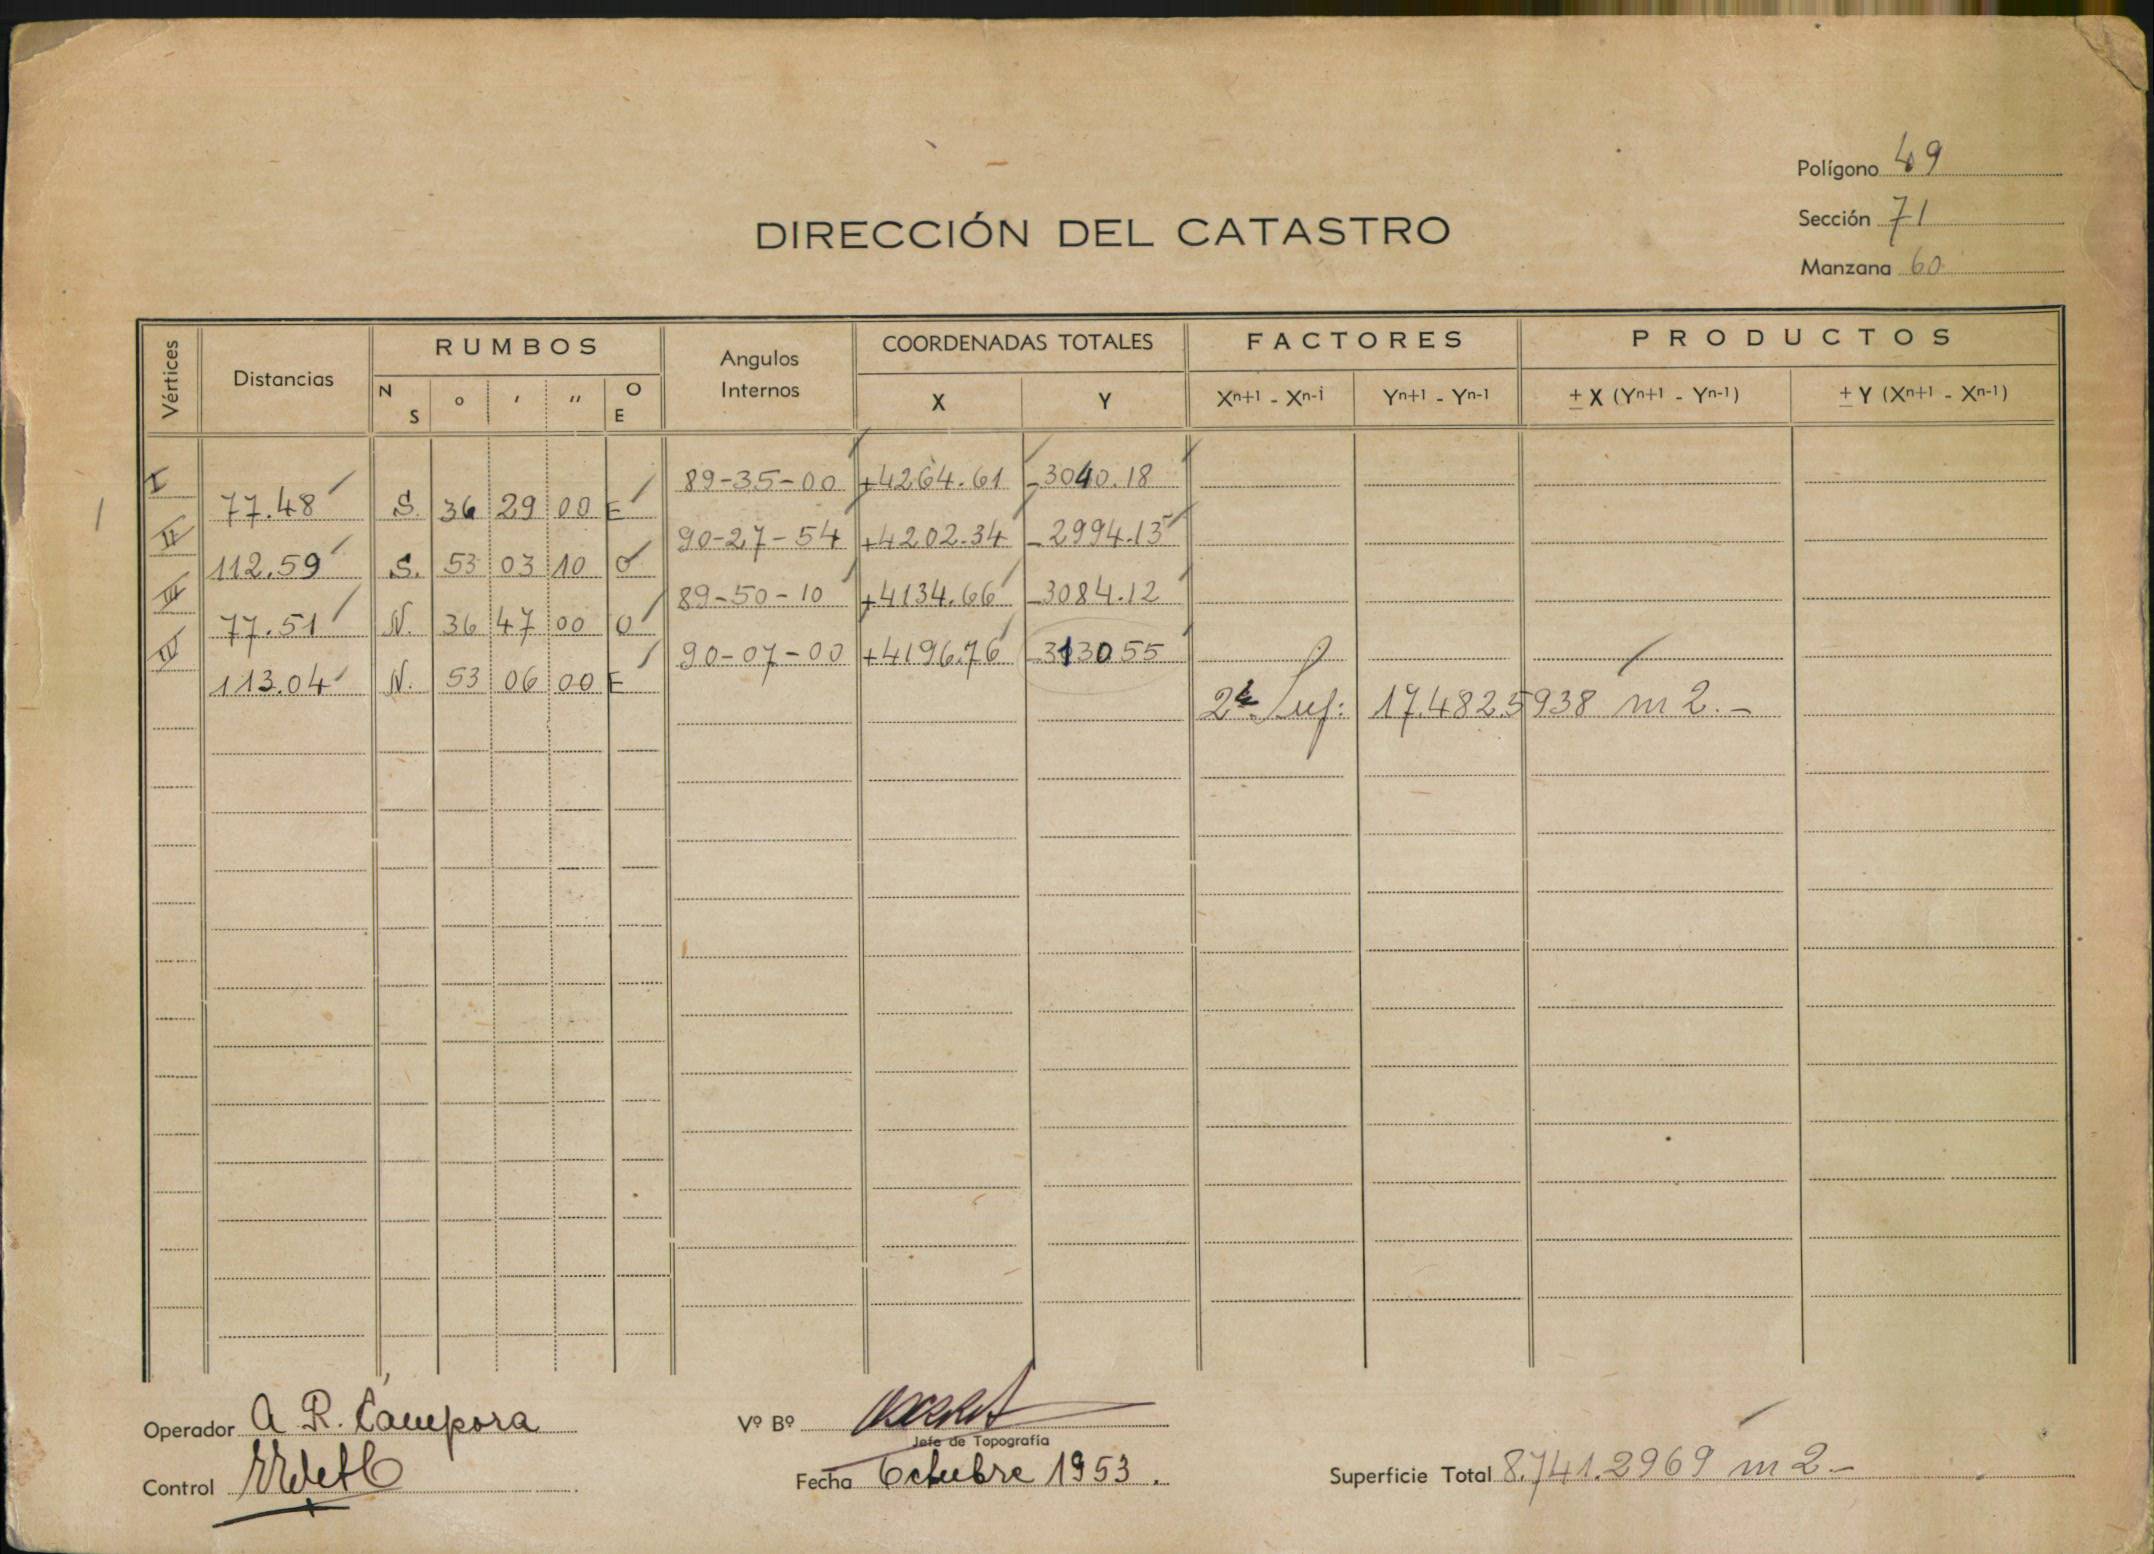 Polígono 49
Sección 71
Manzana 60
DIRECCIÓN DEL CATASTRO
Vértices Distancias RUMBOS Angulos Internos COORDENADAS TOTALES FACTORES PRODUCTOS
N S ° ' " O E X Y Xn+1 - Xn-1 Yn+1 - Yn-1 ± X (Yn+1 - Yn-1) ± Y (Xn+1 - Xn-1)
I 89-35-00 +4264.61 -3040.18
77.48 S. 36 29 00 E
II 90-27-54 +4202.34 -2994.13
112.59 S. 53 03 10 O
III 89-50-10 +4134.66 -3084.12
77.51 N. 36 47 00 O
IV 90-07-00 +4196.76 313055
113.04 N. 53 06 00 E
Sup: 17.482.5938 m2.-
1
Operador A R. Cámpora
Vº Bº
Jefe de Topografía
Control
Fecha Octubre 1953.
Superficie Total 8.741.2969 m2-